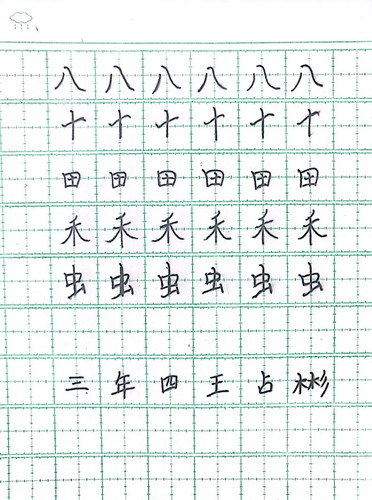 八八八八八八
十十十十十十
田田田田田田
禾禾禾禾禾禾
虫虫虫虫虫虫
三年四王占彬